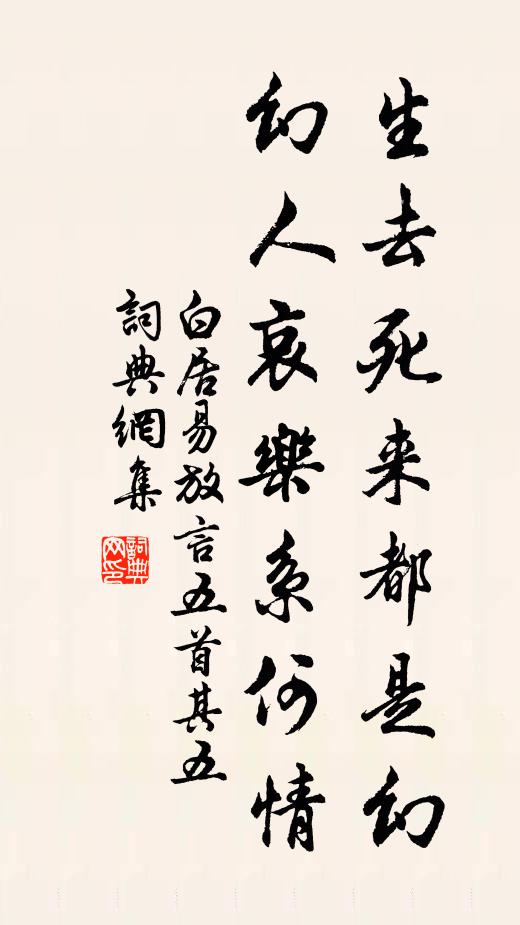 生去死来都是幻
幻人哀樂系何情
白居易放言五首其五
詞典網集
詞典网印